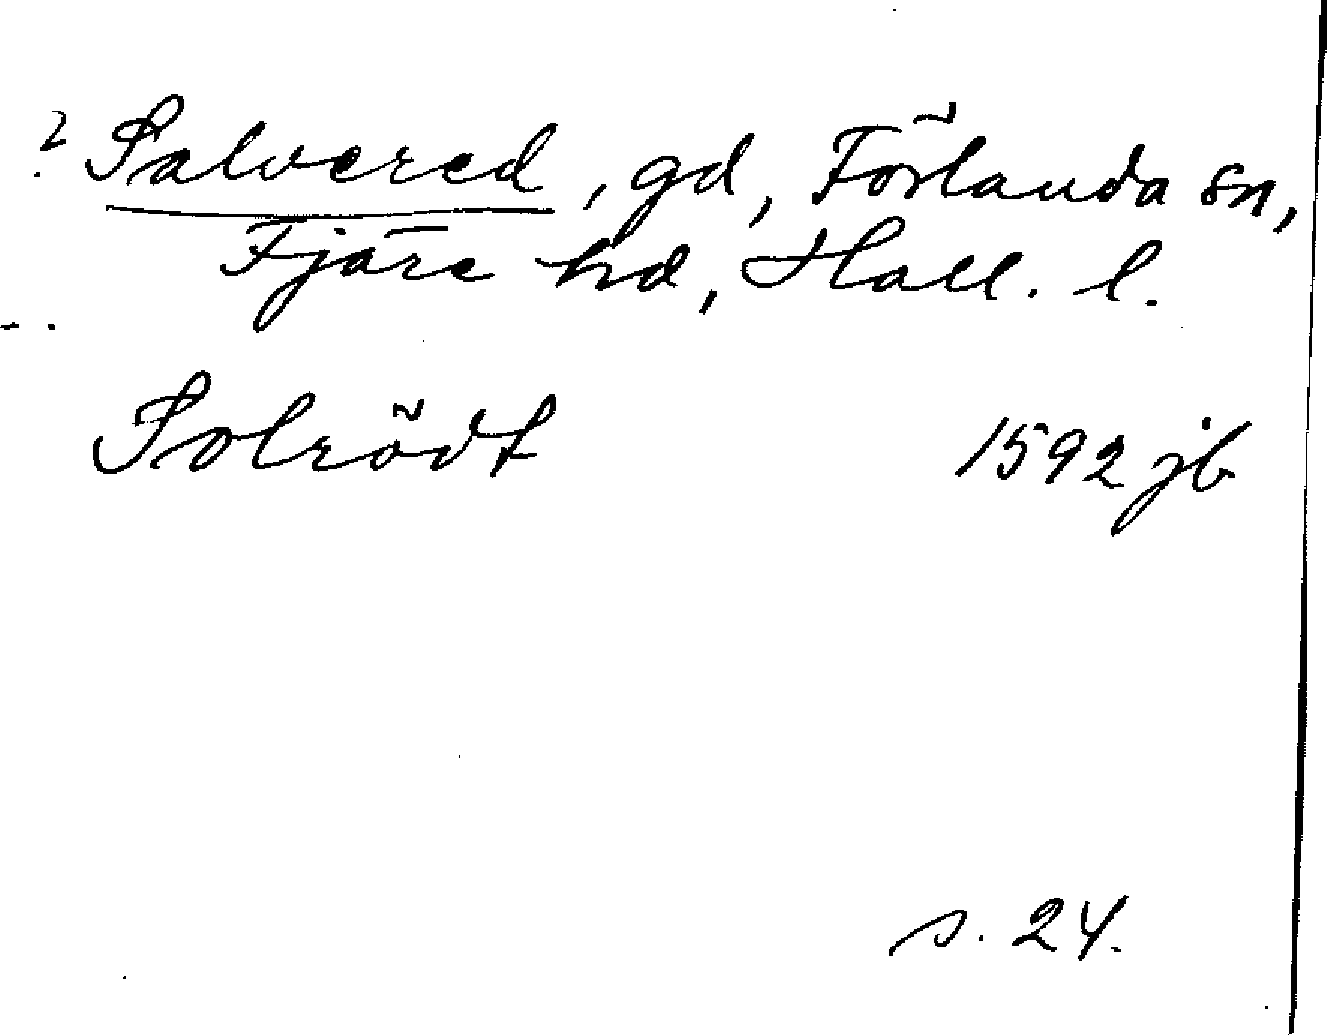 ? Salvered, gd, Förlanda sn,
Fjäre hd, Hall. l.
Solrödt 1592 jb
s. 24.